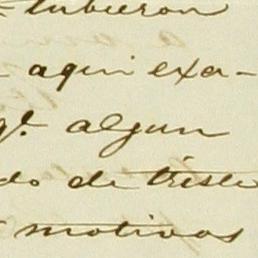 tubieron
aqui exa-
qe. algun
do de triste
motivos